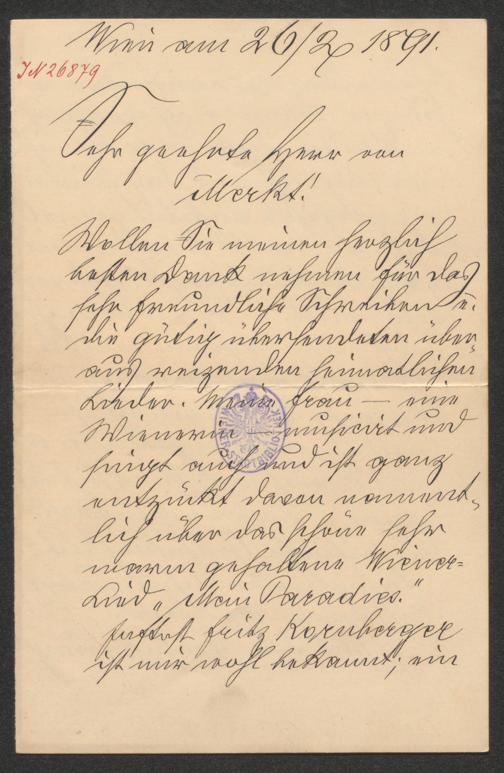 Wien am 26/2 1891.
IN 26879
Sehr geehrte Herr von
Merkt!
Wollen Sie meinen herzlich
besten Dank nehmen für das
sehr freundliche Schreiben u.
die gütig übersendeten über-
aus reizenden heimatlichen
Lieder. Meine Frau — eine
Wienerin — musicirt und
singt auch und ist ganz
entzückt davon nament-
lich über das schöne sehr
warm gehaltene Wiener-
Lied „Mein Paradies."
Fritz Kornberger
ist mir wohl bekannt; ein